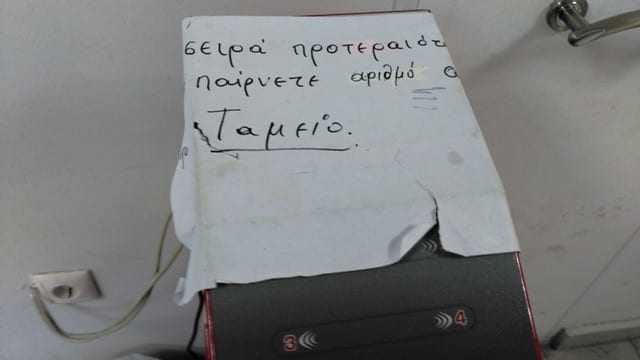 σειρά προτεραιότ
παίρνετε αριθμό α
Ταμείο.
3 4